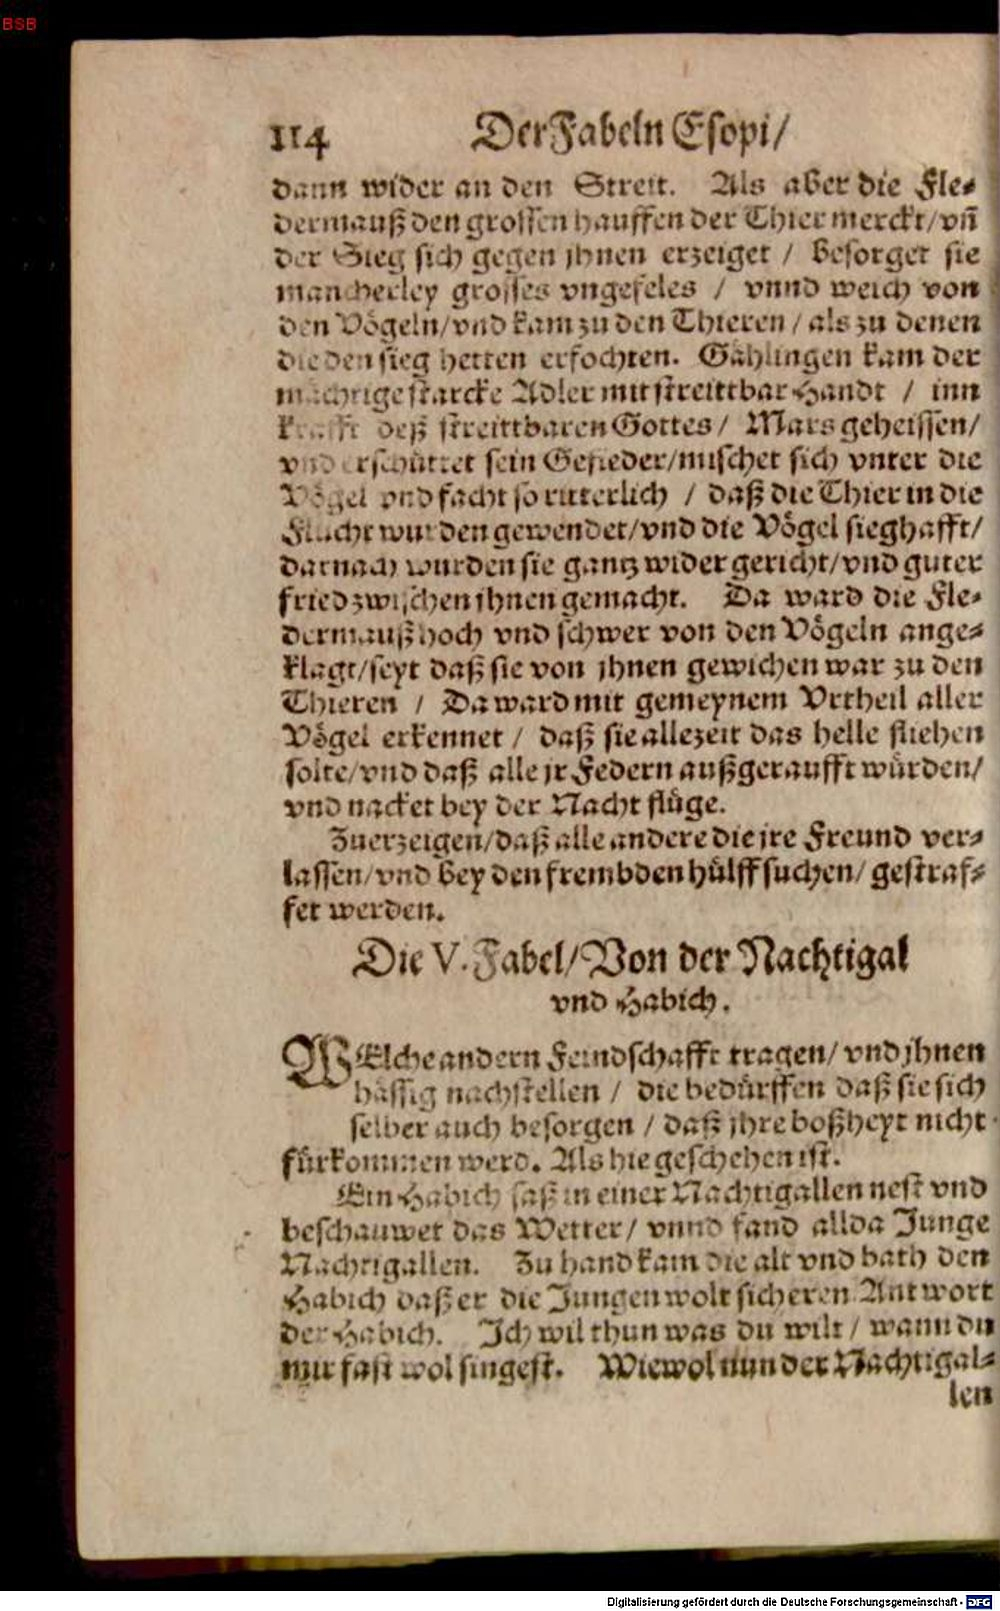 BSB
114 Der Fabeln Esopi/
dann wider an den Streit. Als aber die Fle⸗
dermauß den grossen hauffen der Thier merckt/vñ
der Sieg sich gegen jhnen erzeiget / besorget sie
mancherley grosses vngefeles / vnnd weich von
den Vögeln/vnd kam zu den Thieren / als zu denen
die den sieg hetten erfochten. Gählingen kam der
mächtige starcke Adler mit streittbar Handt / inn
krafft deß streittbaren Gottes / Mars geheissen/
vnd erschüttet sein Gefieder/mischet sich vnter die
Vögel vnd facht so ritterlich / daß die Thier in die
Flucht wurden gewendet/vnd die Vögel sieghafft/
darnach wurden sie gantz wider gericht/vnd guter
fried zwischen jhnen gemacht. Da ward die Fle⸗
dermauß hoch vnd schwer von den Vögeln ange⸗
klagt/seyt daß sie von jhnen gewichen war zu den
Thieren / Da ward mit gemeynem Vrtheil aller
Vögel erkennet / daß sie allezeit das helle fliehen
solte/vnd daß alle jr Federn außgeraufft würden/
vnd nacket bey der Nacht flüge.
Zuerzeigen/daß alle andere die jre Freund ver⸗
lassen/vnd bey den frembden hülff suchen/ gestraf⸗
fet werden.
Die V. Fabel/Von der Nachtigal
vnd Habich.
WElche andern Feindschafft tragen/ vnd jhnen
hässig nachstellen / die bedürffen daß sie sich
selber auch besorgen / daß jhre boßheyt nicht
fürkommen werd. Als hie geschehen ist.
Ein Habich saß in einer Nachtigallen nest vnd
beschauwet das Wetter/ vnnd fand allda Junge
Nachtigallen. Zu hand kam die alt vnd bath den
Habich daß er die Jungen wolt sicheren Antwort
der Habich. Ich wil thun was du wilt / wann du
mir fast wol singest. Wiewol nun der Nachtigal⸗
len
Digitalisierung gefördert durch die Deutsche Forschungsgemeinschaft - DFG